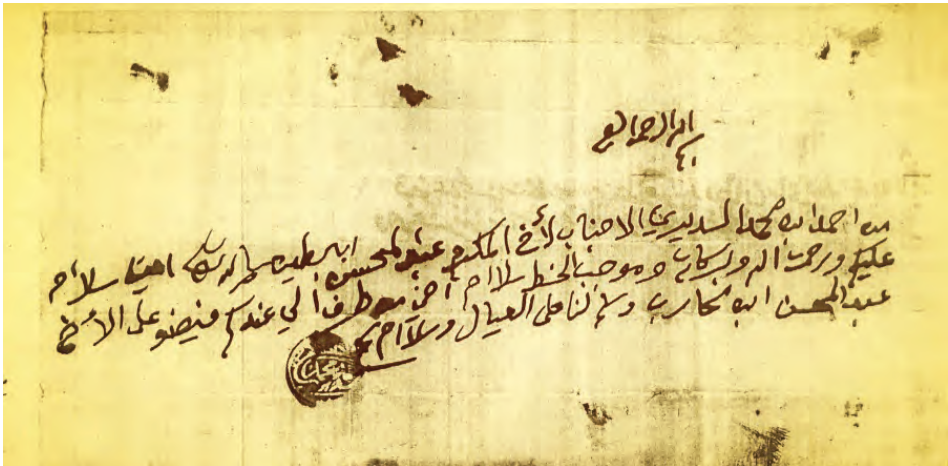 بسم الله الرحمن الرحيم
من احمد ابن محمد السديري الا جناب لأخ المكرم عبدالمحسن ابن سلمه الله امين سلاام
عليكم ورحمت الله وبركاته وموجب الخط سلاام الي عندكم على الأخ
عبدالمحسن ابن وسلم لنا على العيال وسلاام